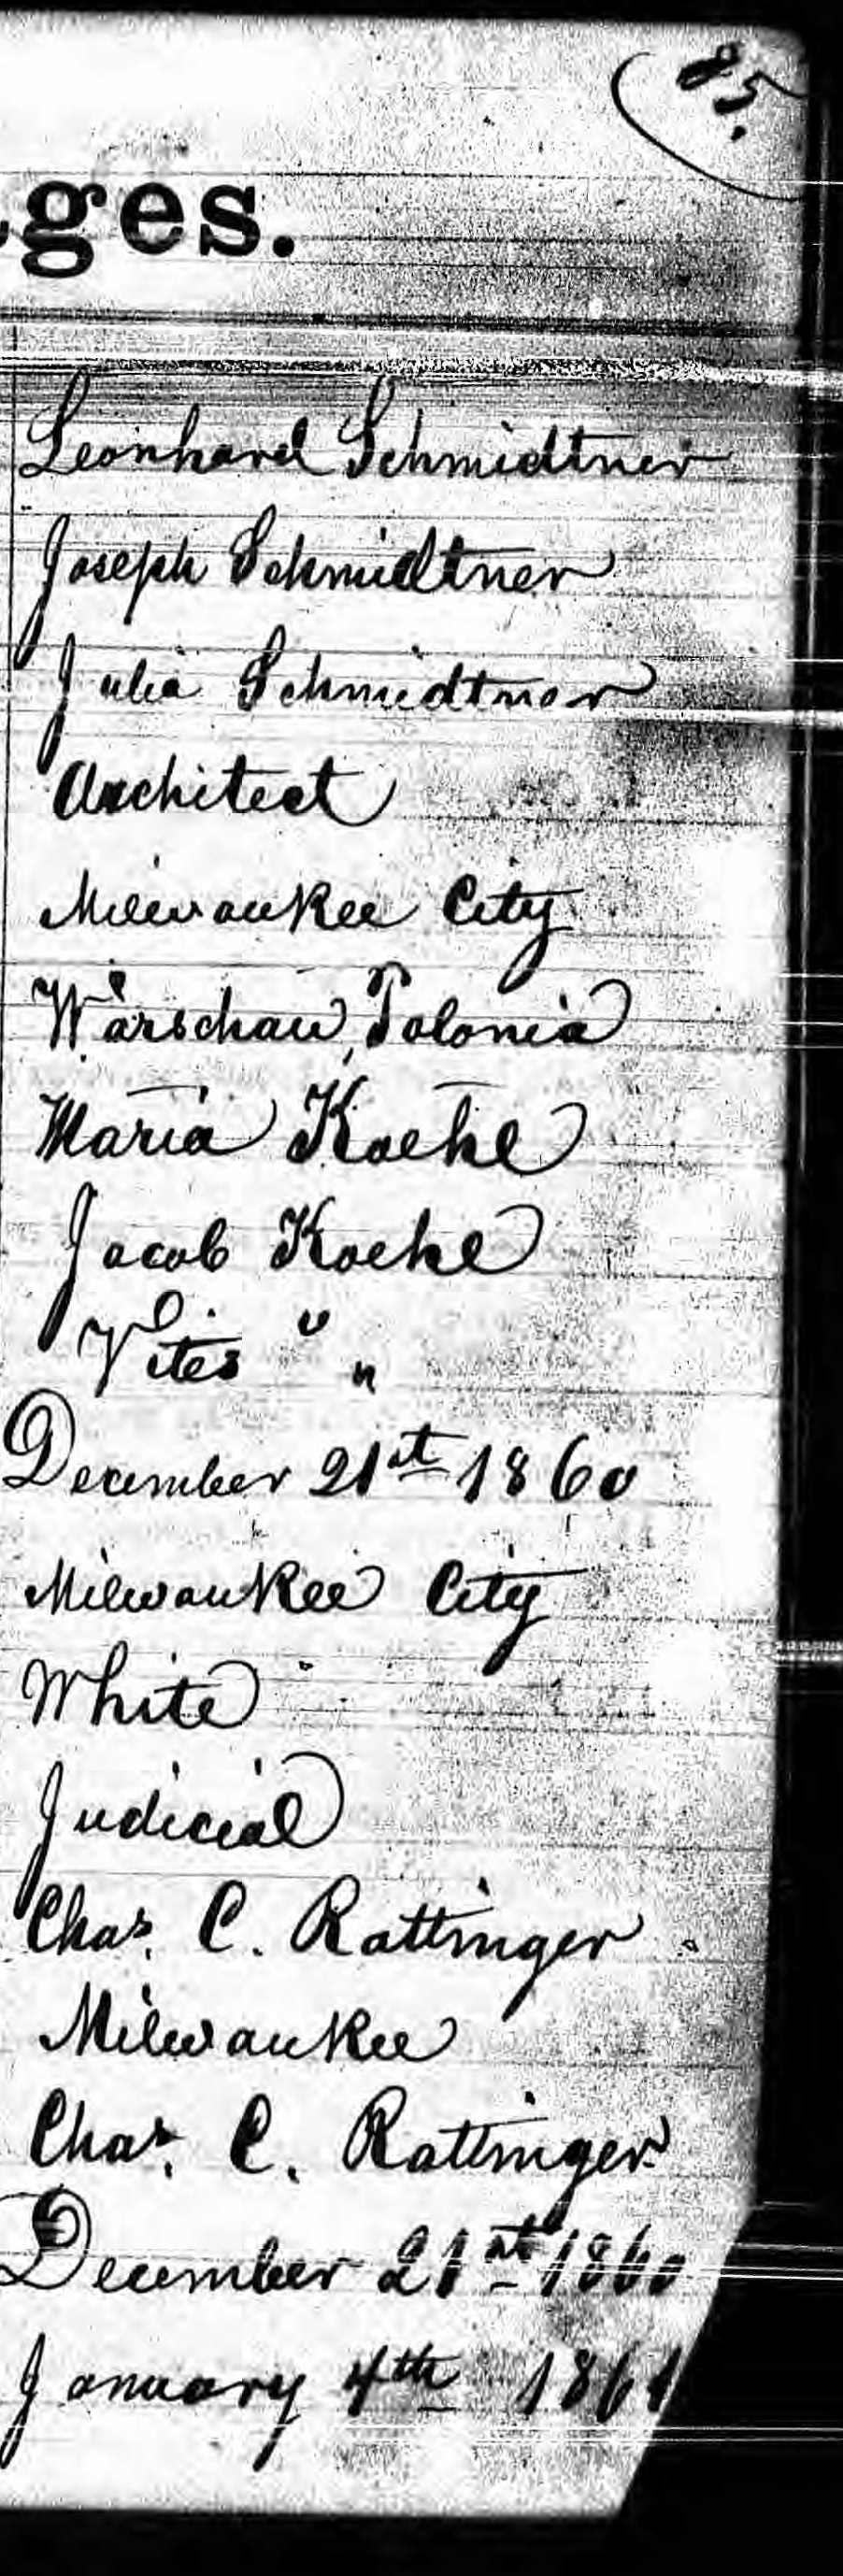 85.
ges.
Leonhard Schmidtner
Joseph Schmidtner
Julia Schmidtner
Architect
Milwaukee City
Warschau, Polonia
Maria Koehl
Jacob Koehl
" "
December 21st 1860
Milwaukee City
White
Judicial
Chas. C. Rattinger
Milwaukee
Chas. C. Rattinger
December 21st 1860
January 4th 1861